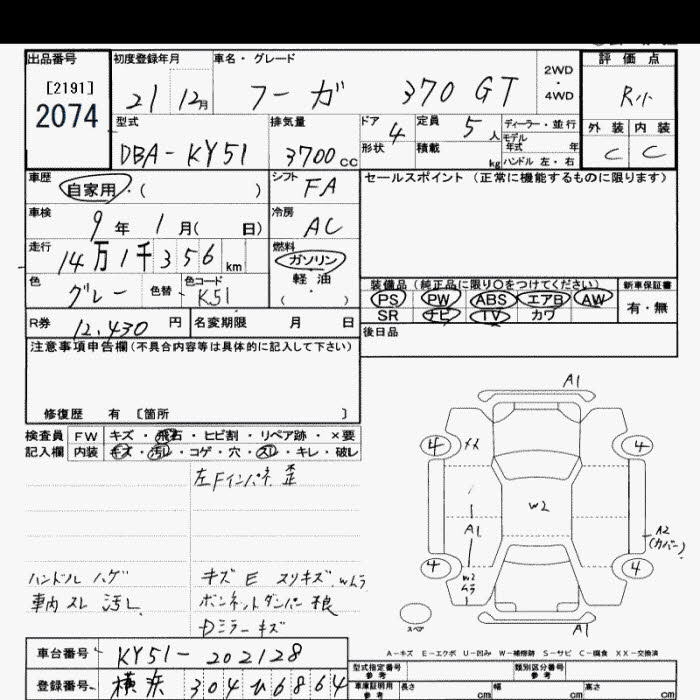 出品番号 初度登録年月 車名・グレード 評価点
[2191]
2074
21 12月 フーガ 370 GT 2WD・4WD R小
型式 排気量 ドア 4 定員 5人 ディーラー・並行 外装 内装
DBA-KY51 3700cc 形状 積載 kg モデル年式 年 ハンドル 左・右 C C
車歴 自家用・( ) シフト FA セールスポイント(正常に機能するものに限ります)
車検 9年 1月( 日) 冷房 AC
走行 14万1千356km 燃料 ガソリン
軽油
( ・ )
色 グレー 色替 - 色コード K51
装備品(純正品に限り○をつけてください) 新車保証書
PS PW ABS エアB AW 有・無
SR ナビ TV カワ
R券 12,430円 名変期限 月 日 後日品
注意事項申告欄(不具合内容等は具体的に記入して下さい)
修復歴 有 〔箇所 〕
検査員 FW キズ・飛石・ヒビ割・リペア跡・×要
記入欄 内装 キズ・汚レ・コゲ・穴・スレ・キレ・破レ
左Fインパネ 歪
ハンドル ハゲ キズ E スリキズ Wムラ
車内 スレ 汚レ ボンネットダンパー 不良
Dミラーキズ
A1
4 XX 4
A1 W2 A2
(カバー)
4 W2 ムラ 4
スペア A1
A-キズ E-エクボ U-凹み W-補修跡 S-サビ C-腐食 XX-交換済
車台番号 KY51-202128
登録番号 横浜 304 ひ 6864
型式指定番号 参考 類別区分番号 参考
車庫証明用 参考 長さ cm 幅 cm 高さ cm